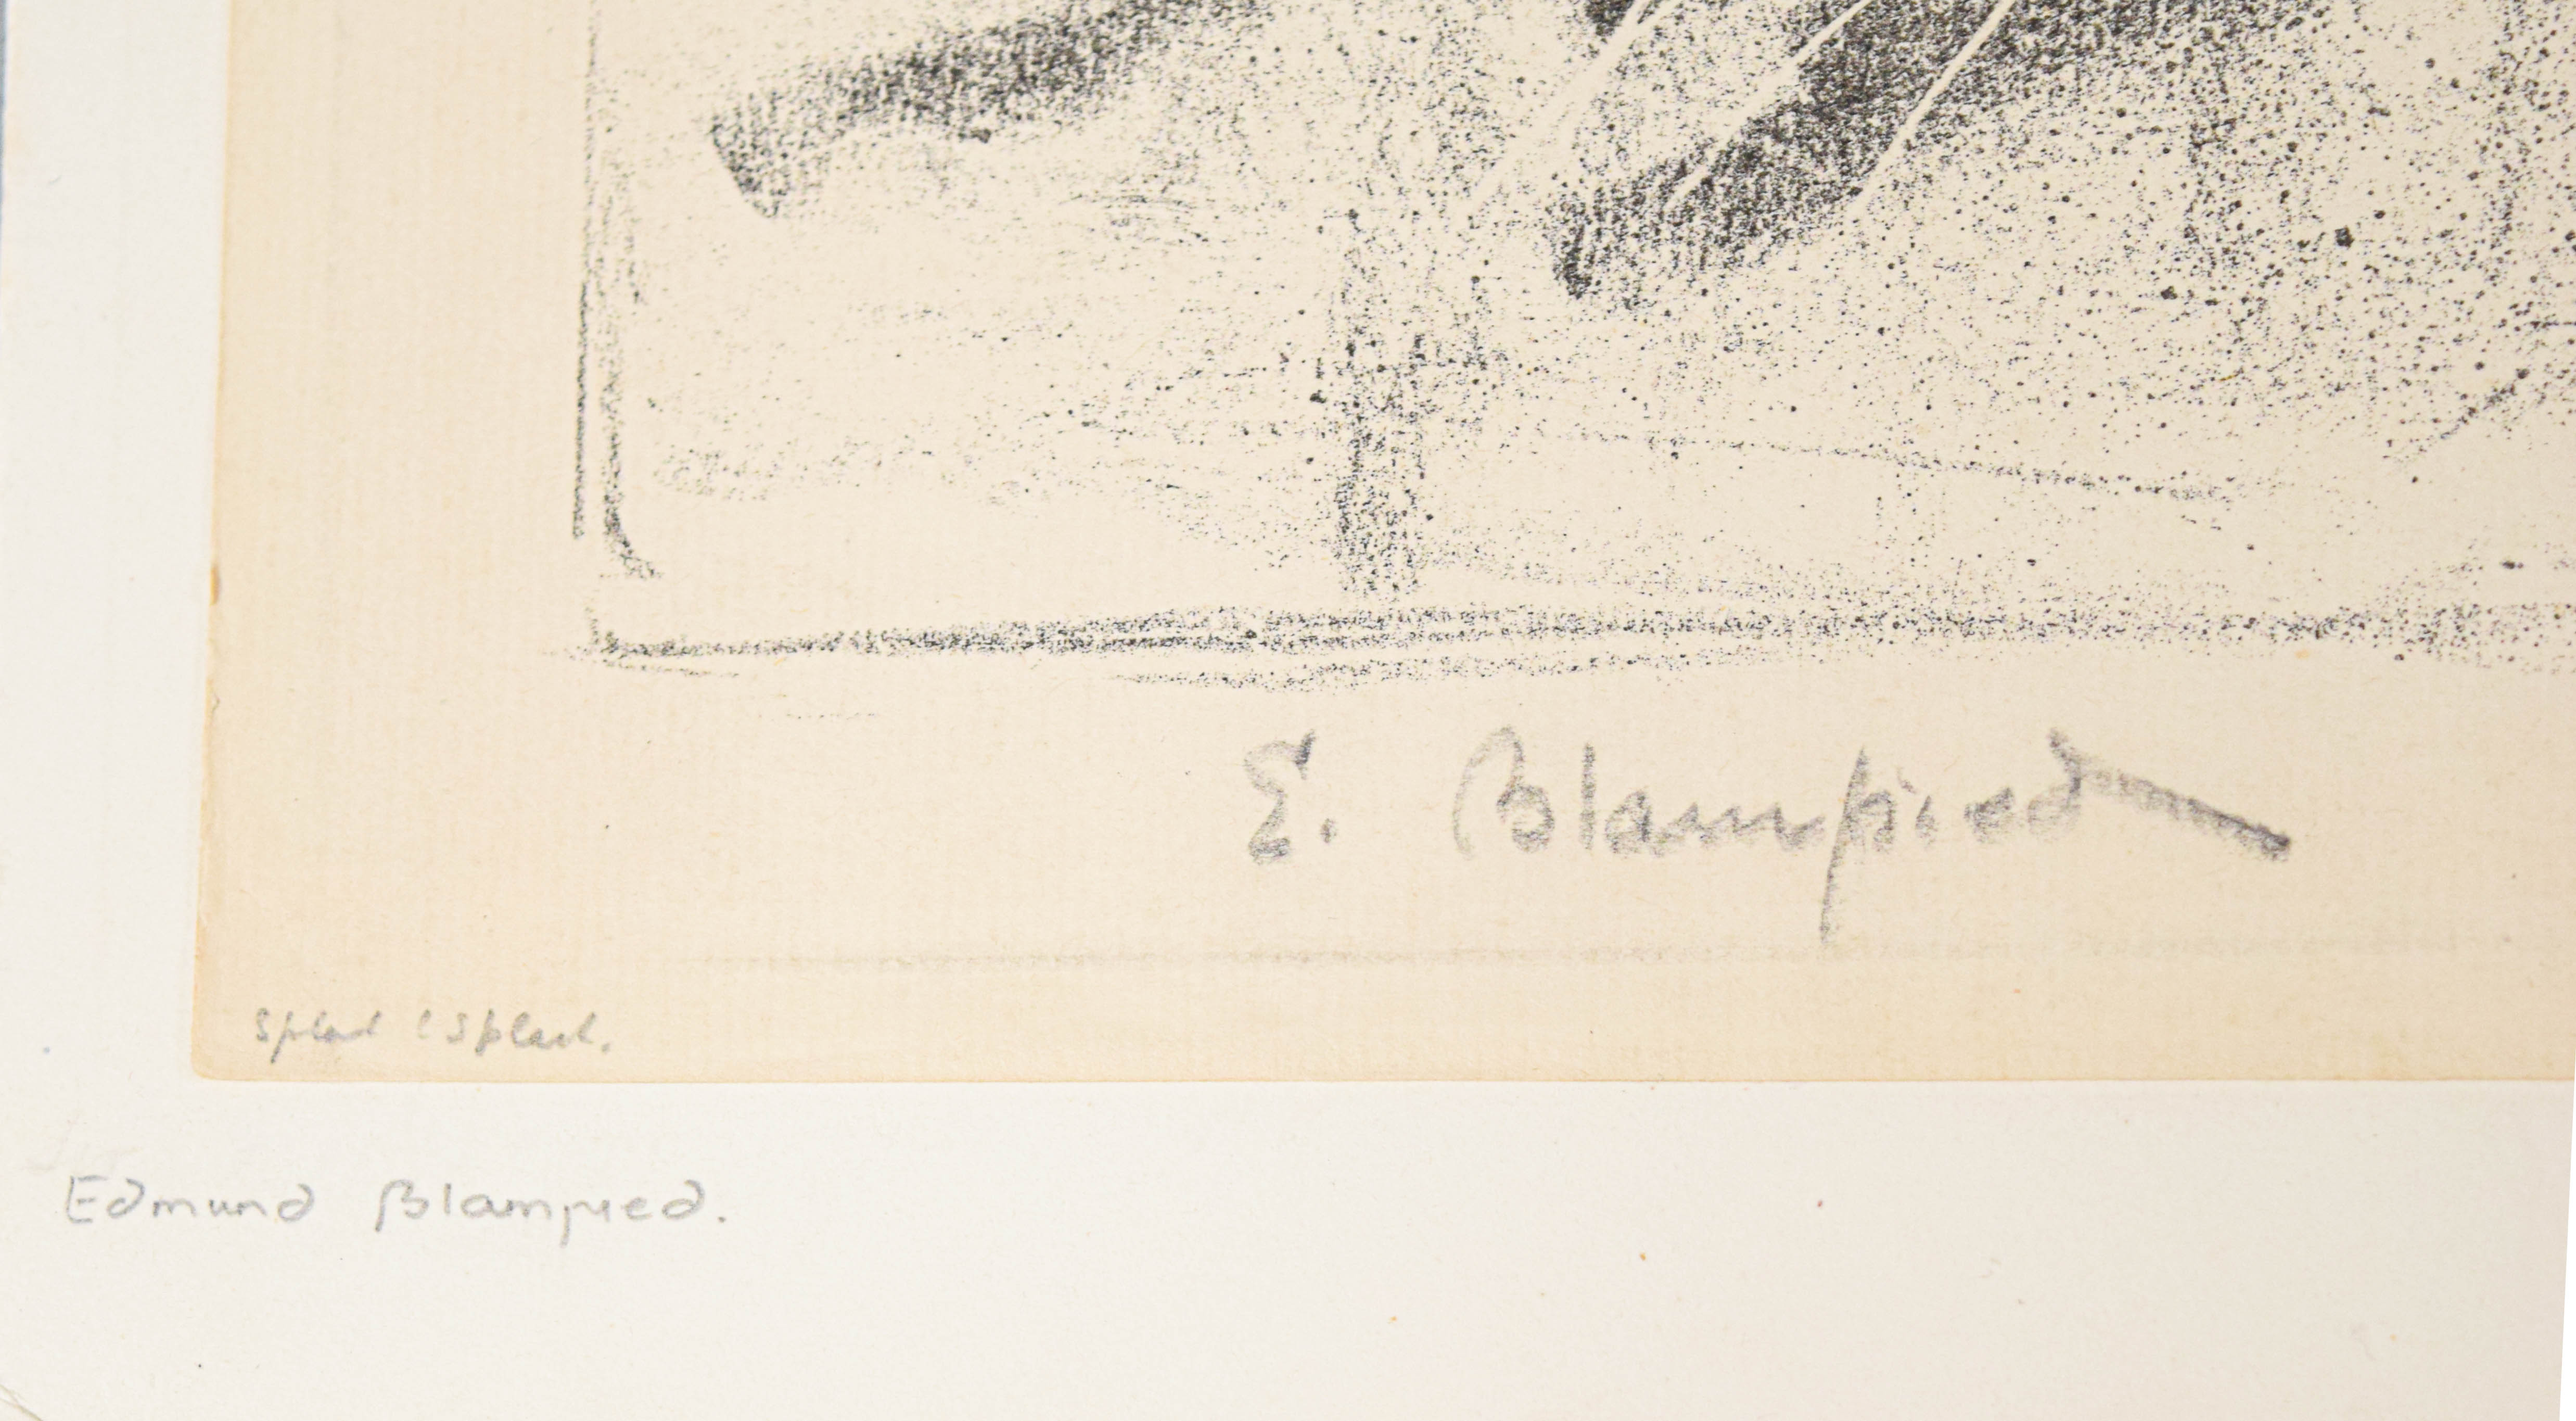 E. Blampied
Splash & Splash.
Edmund Blampied.